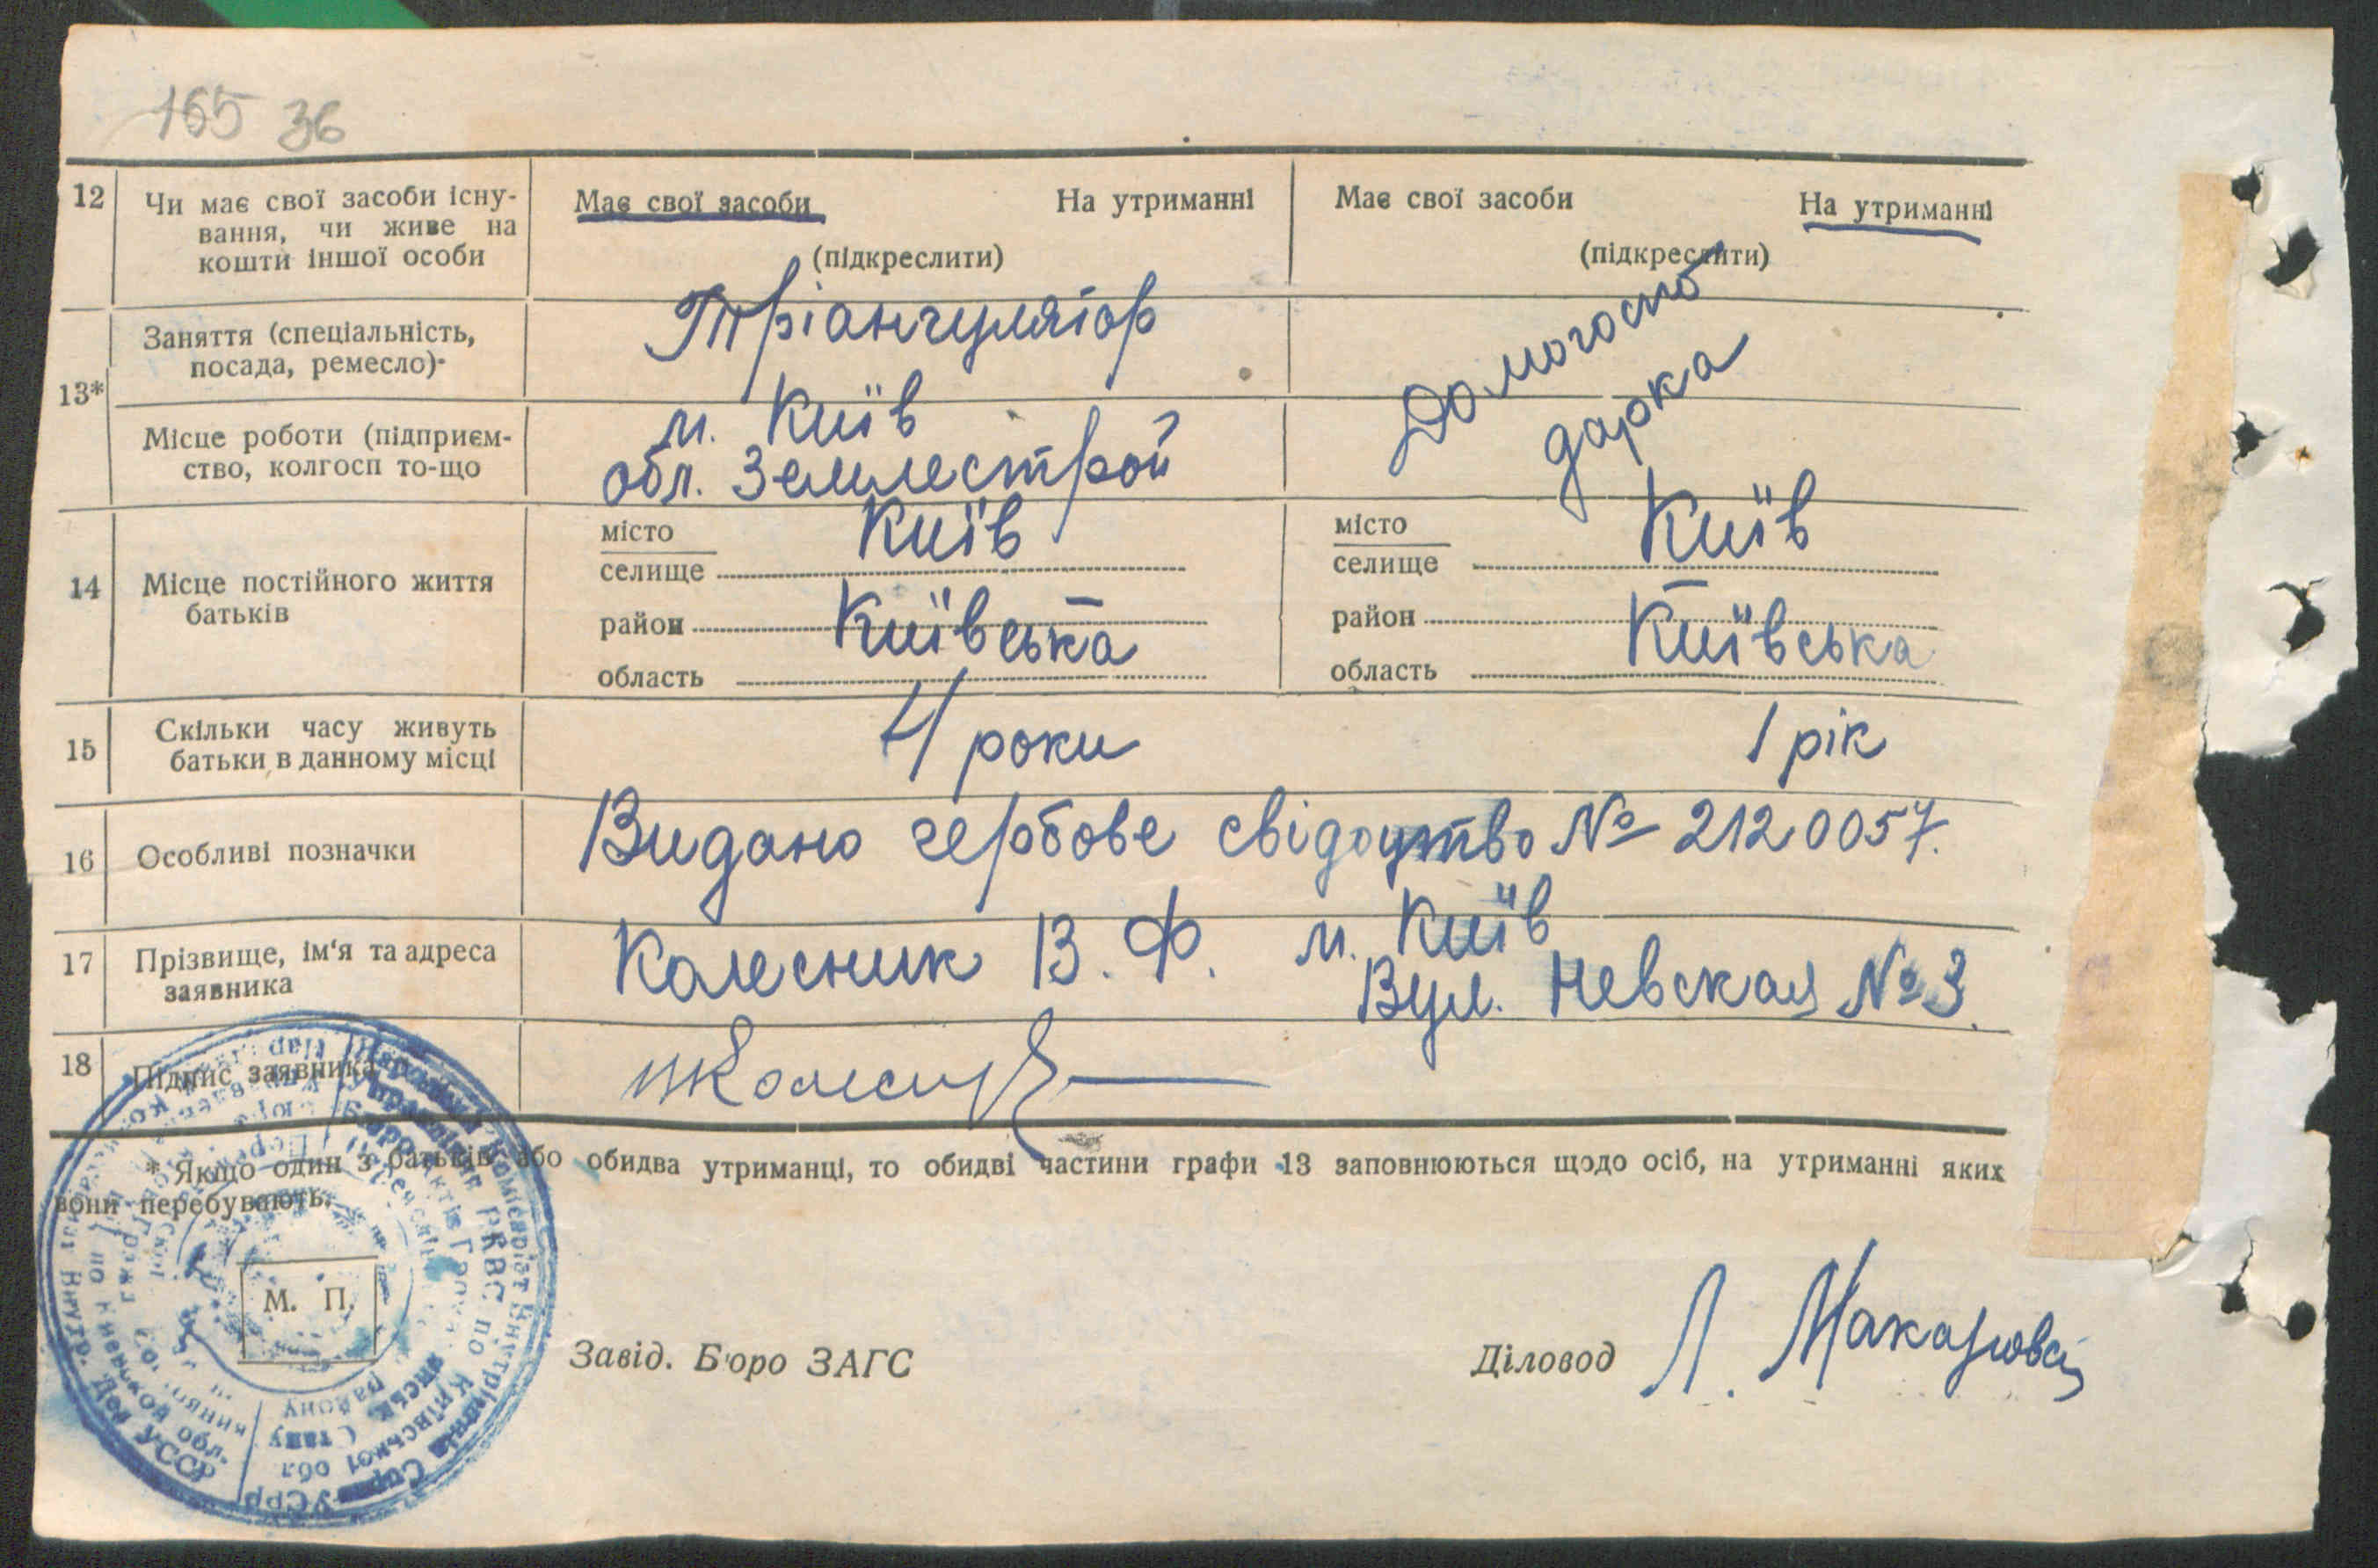 165 36
12 Чи має свої засоби існу-
вання, чи живе на
кошти іншої особи
Має свої засоби На утриманні
(підкреслити)
Має свої засоби На утриманні
(підкреслити)
13*
Заняття (спеціальність,
посада, ремесло)-
Тріангулятор
Домогоспо
дарка
Місце роботи (підприєм-
ство, колгосп то-що
м. Київ
обл. Землестрой
14 Місце постійного життя
батьків
місто
селище Київ
район —
область Київська
місто
селище Київ
район —
область Київська
15 Скільки часу живуть
батьки в данному місці
4 роки 1 рік
16 Особливі позначки
Видано гербове свідоцтво № 2120057.
17 Прізвище, ім'я та адреса
заявника
Колесник В. Ф. м. Київ
Вул. Невская № 3.
18 Підпис заявника
* Якщо один з батьків або обидва утриманці, то обидві частини графи 13 заповнюються щодо осіб, на утриманні яких
вони перебувають.
М. П.
Завід. Б'юро ЗАГС Діловод Л.